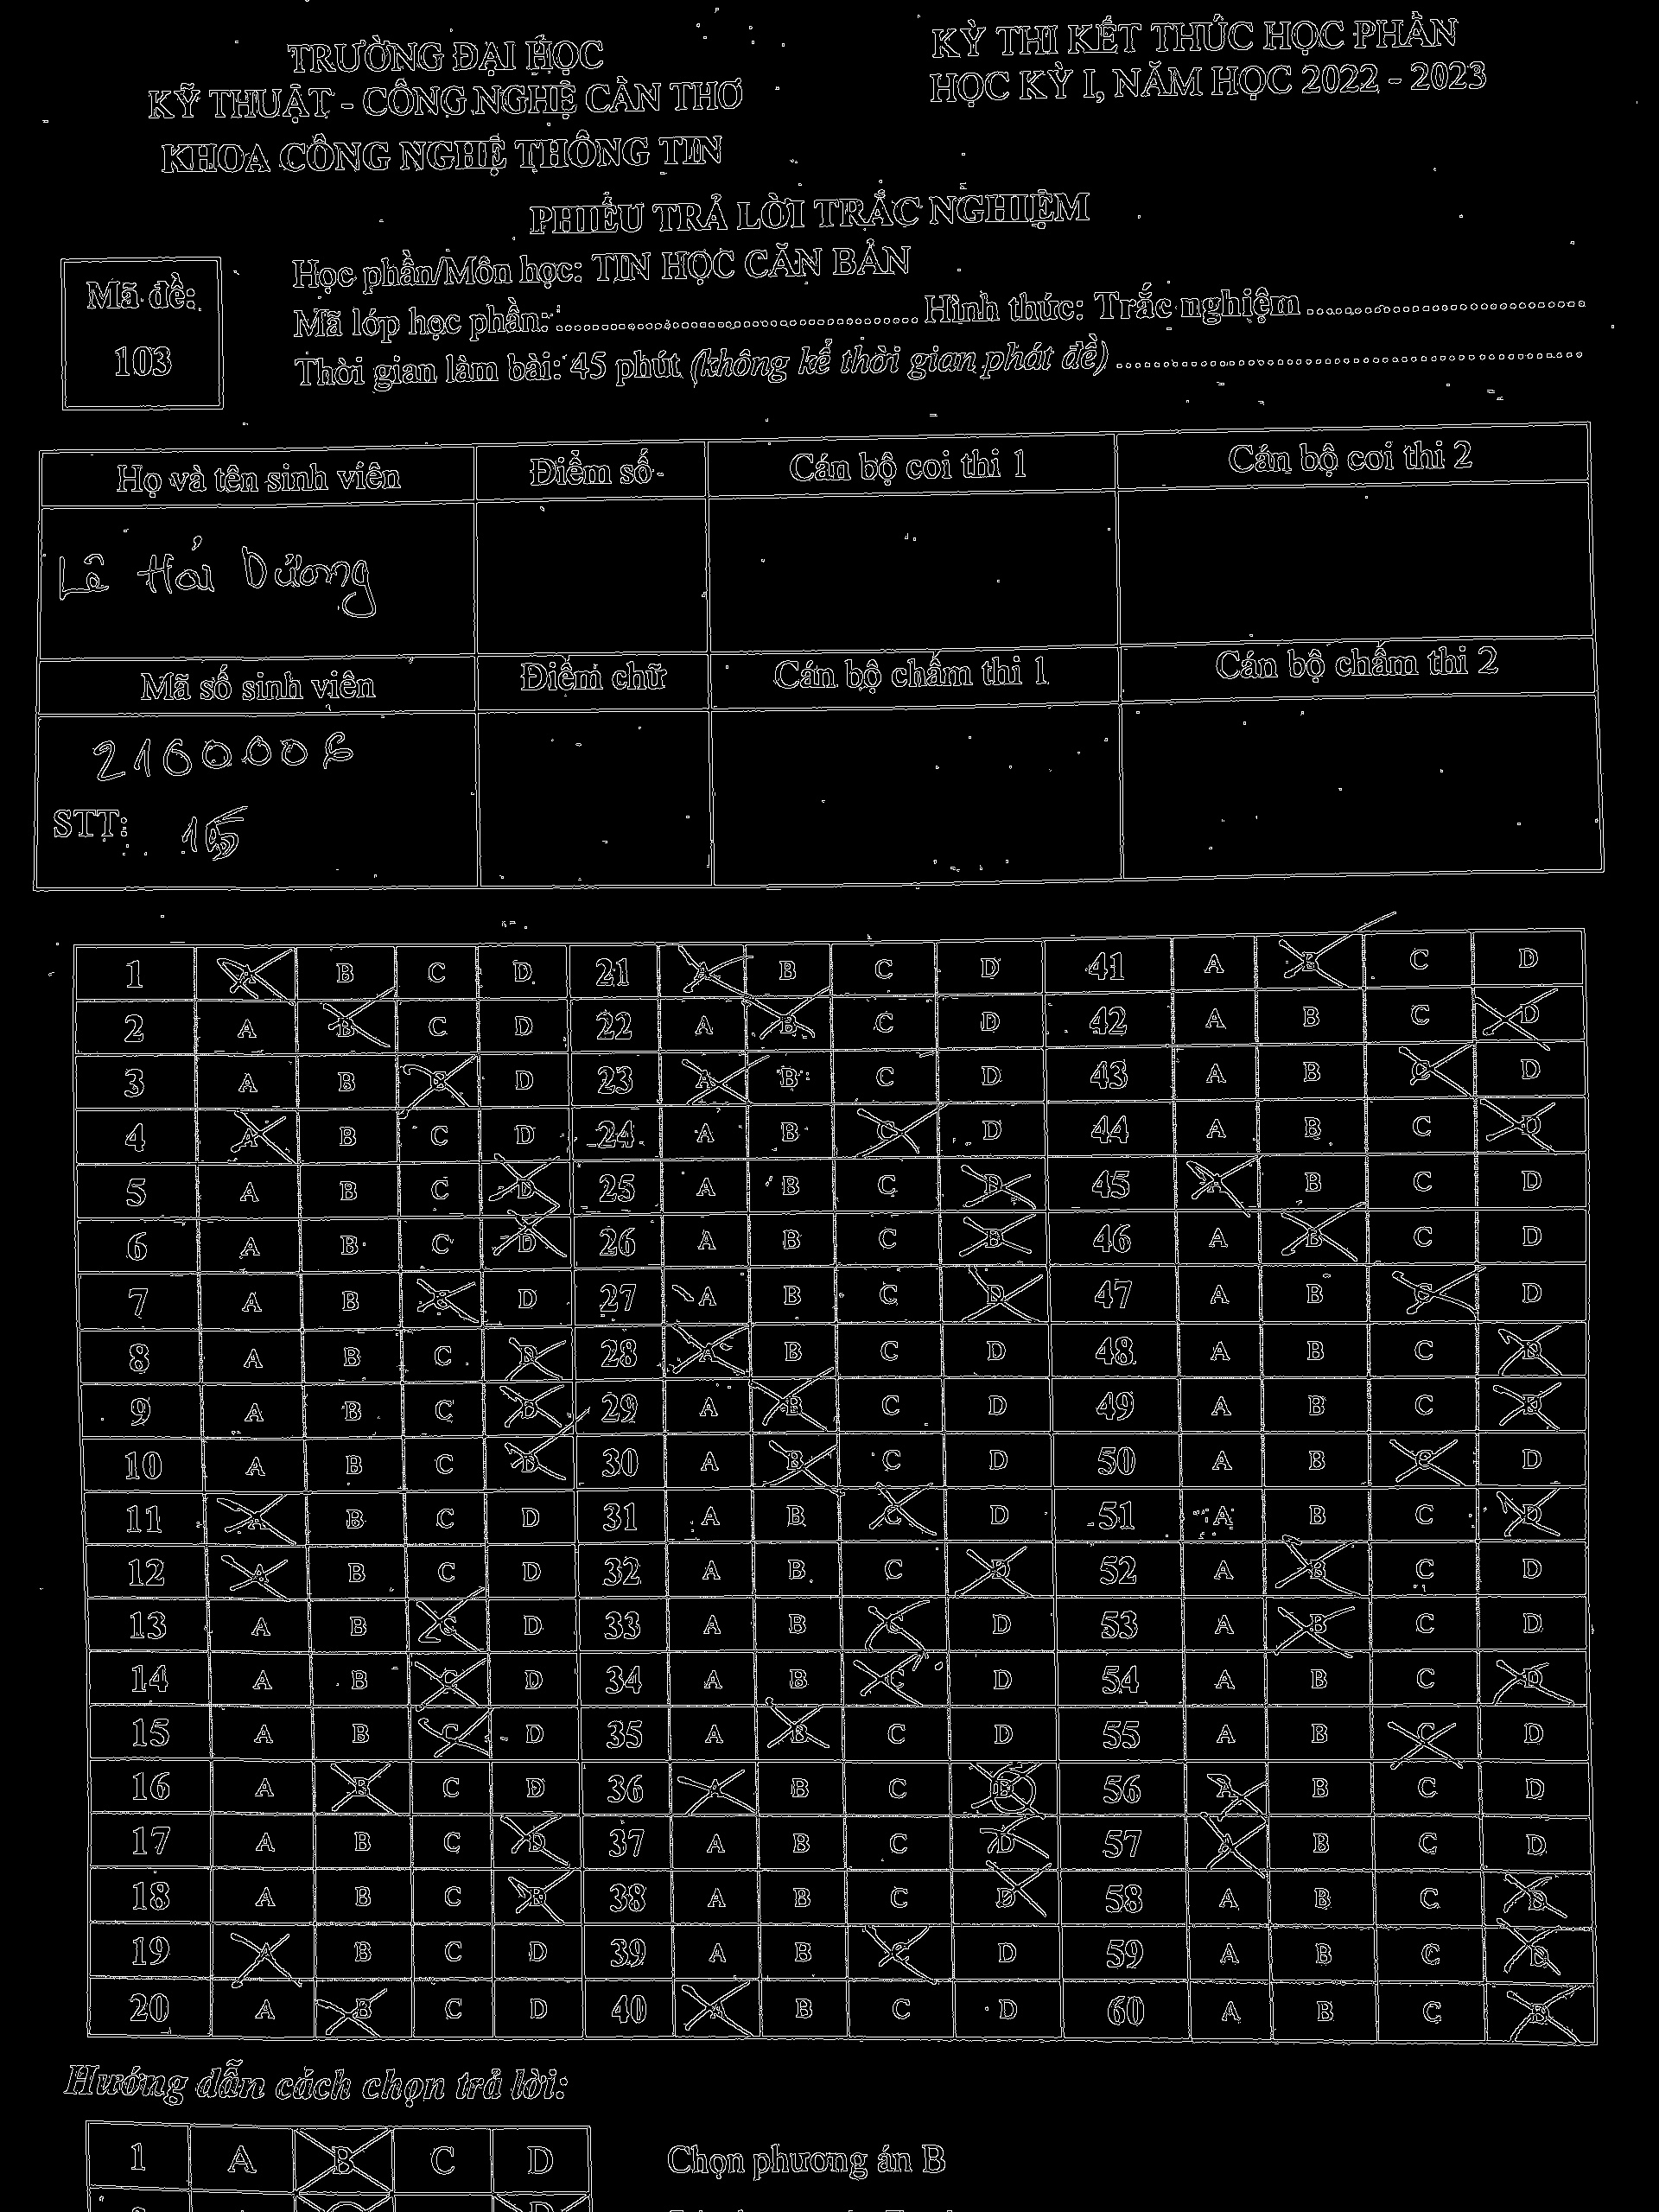 TRƯỜNG ĐẠI HỌC
KỸ THUẬT - CÔNG NGHỆ CẦN THƠ
KHOA CÔNG NGHỆ THÔNG TIN
KỲ THI KẾT THÚC HỌC PHẦN
HỌC KỲ I, NĂM HỌC 2022 - 2023
PHIẾU TRẢ LỜI TRẮC NGHIỆM
Mã đề:
103
Học phần/Môn học: TIN HỌC CĂN BẢN
Mã lớp học phần: Hình thức: Trắc nghiệm
Thời gian làm bài: 45 phút (không kể thời gian phát đề)
Họ và tên sinh viên Điểm số Cán bộ coi thi 1 Cán bộ coi thi 2
Lê Hải Dương
Mã số sinh viên Điểm chữ Cán bộ chấm thi 1 Cán bộ chấm thi 2
2100006
STT: 15
1 A B C D 21 A B C D 41 A B C D
2 A B C D 22 A B C D 42 A B C D
3 A B C D 23 A B C D 43 A B C D
4 A B C D 24 A B C D 44 A B C D
5 A B C D 25 A B C D 45 A B C D
6 A B C D 26 A B C D 46 A B C D
7 A B C D 27 A B C D 47 A B C D
8 A B C D 28 A B C D 48 A B C D
9 A B C D 29 A B C D 49 A B C D
10 A B C D 30 A B C D 50 A B C D
11 A B C D 31 A B C D 51 A B C D
12 A B C D 32 A B C D 52 A B C D
13 A B C D 33 A B C D 53 A B C D
14 A B C D 34 A B C D 54 A B C D
15 A B C D 35 A B C D 55 A B C D
16 A B C D 36 A B C D 56 A B C D
17 A B C D 37 A B C D 57 A B C D
18 A B C D 38 A B C D 58 A B C D
19 A B C D 39 A B C D 59 A B C D
20 A B C D 40 A B C D 60 A B C D
Hướng dẫn cách chọn trả lời:
1 A B C D Chọn phương án B